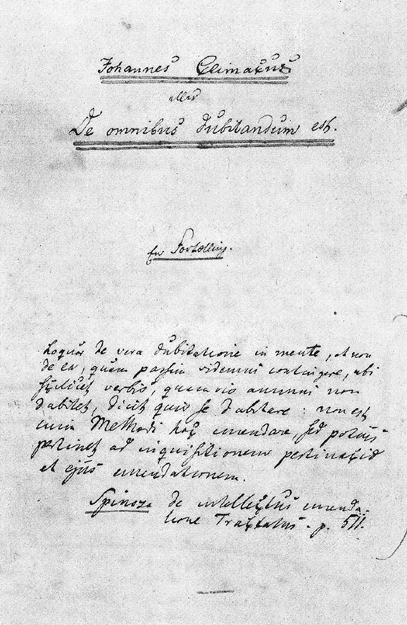 Johannes Climacus
eller
De omnibus dubitandum est.
En Fortælling.
loquor de vera dubitatione in mente, et non
de ea, quam passim videmus contingere, ubi
scilicet verbis, quamvis animus non
dubitet, dicit quis se dubitare: non est
enim Methodi hoc emendare, sed potius
pertinet ad inquisitionem pertinaciæ
et ejus emendationem.
Spinoza de intellectus emenda-
tione Tractatus. p. 511.